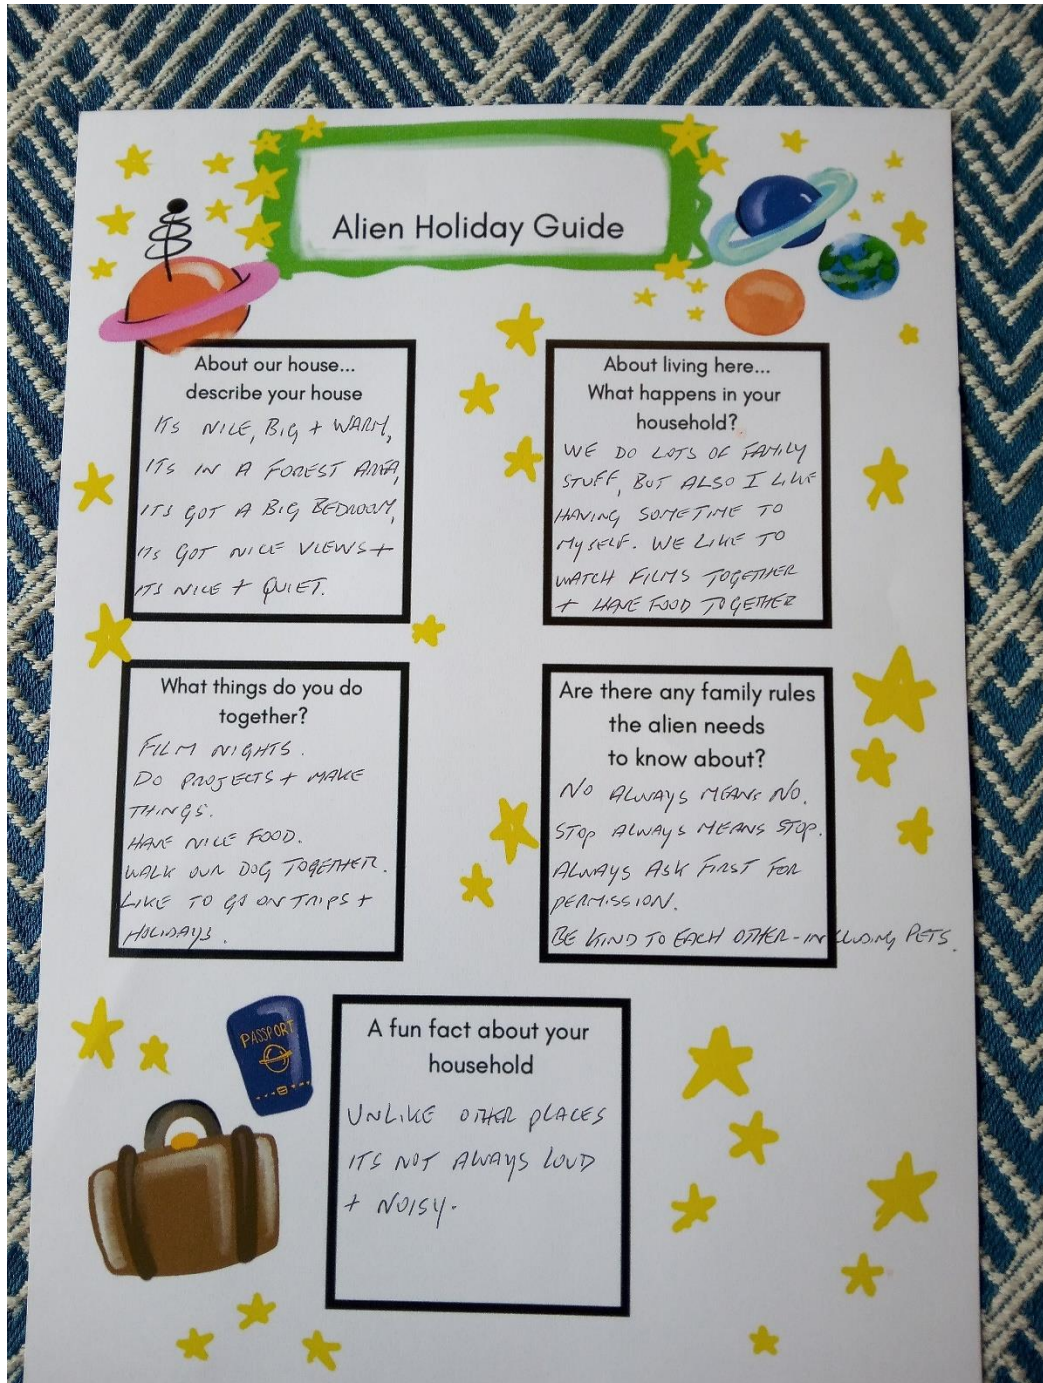 Alien Holiday Guide
About our house...
describe your house
ITS NICE, BIG + WARM,
ITS IN A FOREST AREA,
ITS GOT A BIG BEDROOM,
ITS GOT NICE VIEWS +
ITS NICE + QUIET.
About living here...
What happens in your
household?
WE DO LOTS OF FAMILY
STUFF, BUT ALSO I LIKE
HAVING SOMETIME TO
MYSELF. WE LIKE TO
WATCH FILMS TOGETHER
+ HAVE FOOD TOGETHER
What things do you do
together?
FILM NIGHTS.
DO PROJECTS + MAKE
THINGS.
HAVE NICE FOOD.
WALK OUR DOG TOGETHER.
LIKE TO GO ON TRIPS +
HOLIDAYS.
Are there any family rules
the alien needs
to know about?
NO ALWAYS MEANS NO.
STOP ALWAYS MEANS STOP.
ALWAYS ASK FIRST FOR
PERMISSION.
BE KIND TO EACH OTHER - INCLUDING PETS.
PASSPORT
A fun fact about your
household
UNLIKE OTHER PLACES
ITS NOT ALWAYS LOUD
+ NOISY.